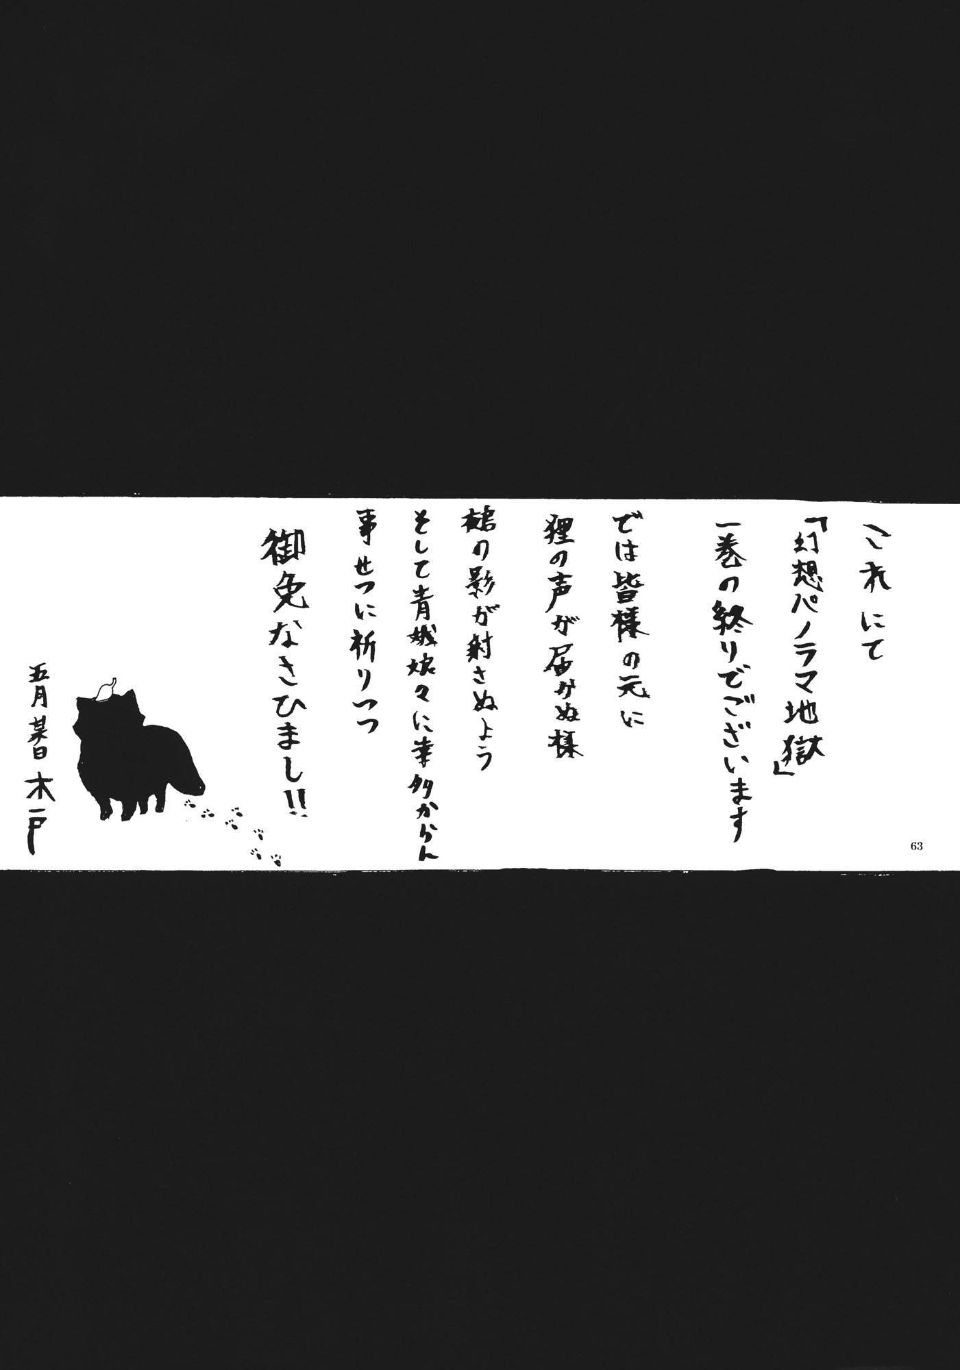 これにて
「幻想パノラマ地獄」
一巻の終りでございます
では皆様の元に
狸の声が届かぬ様
鵺の影が射さぬよう
そして青娥娘々に幸多からん
事せつに祈りつつ
御免なさひまし!!
五月某日 木戸
63